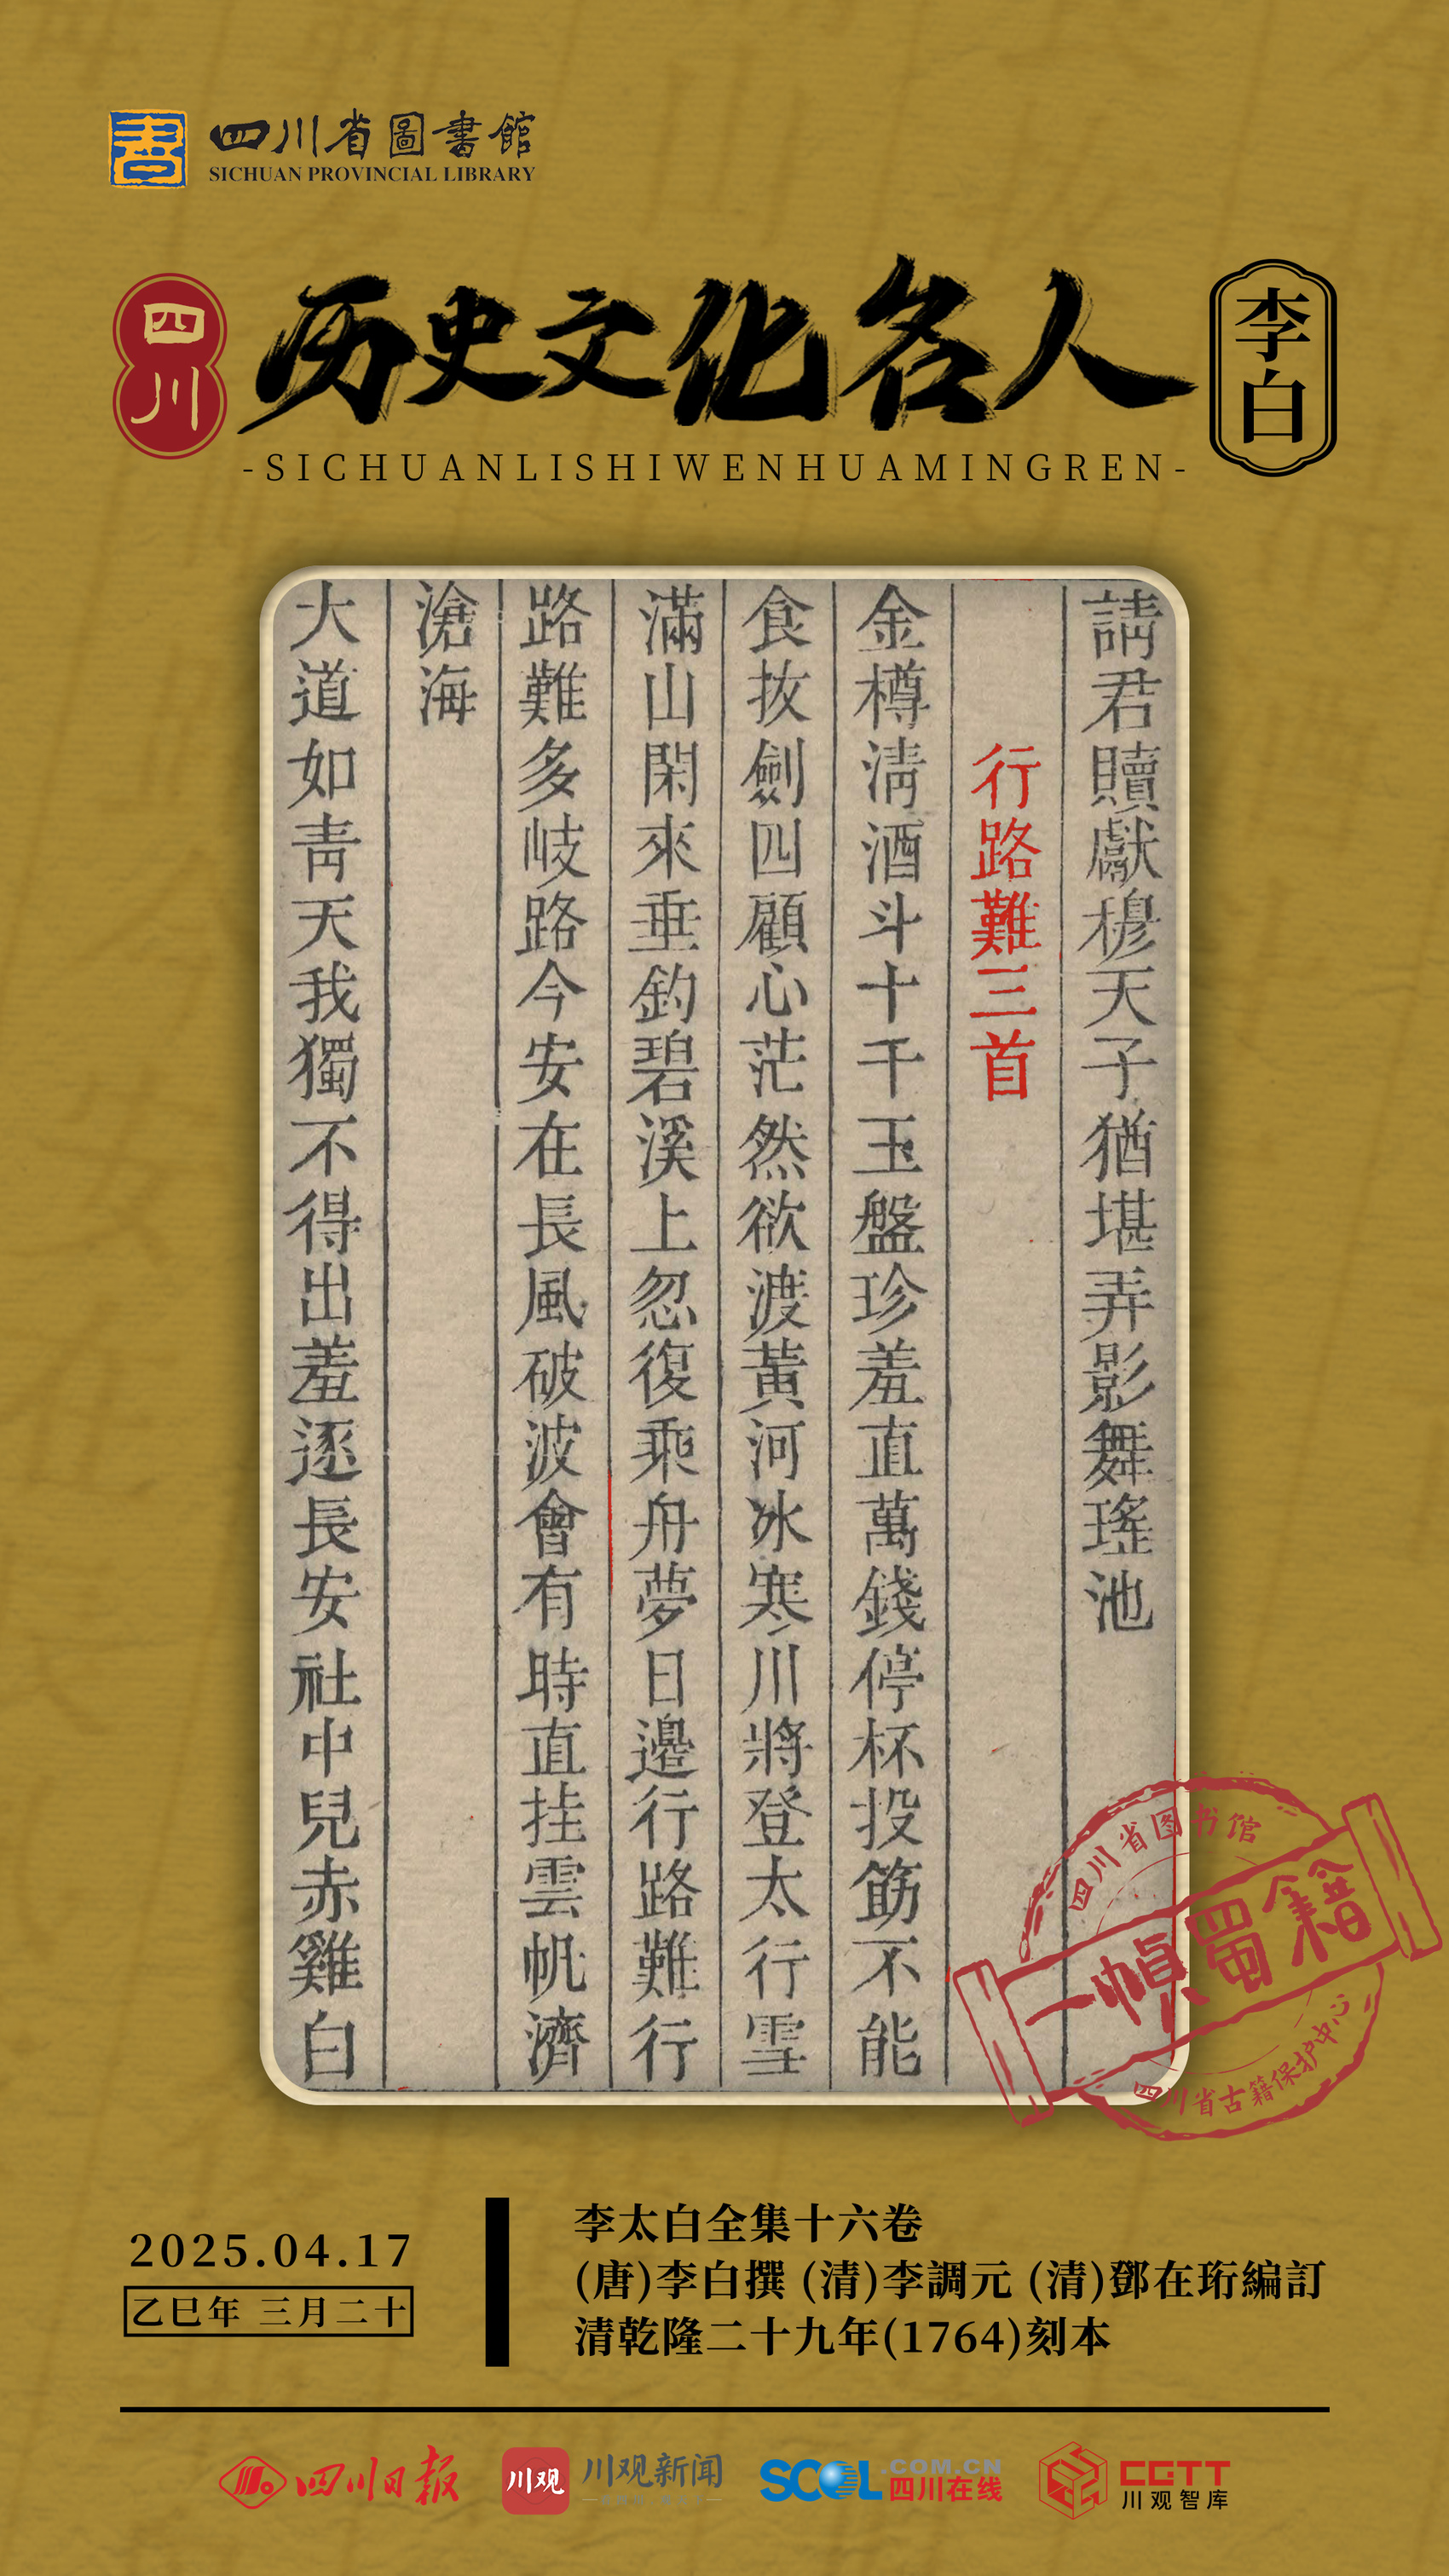 四川省圖書館
SICHUAN PROVINCIAL LIBRARY
四川
历史文化名人
李白
-SICHUANLISHIWENHUAMINGREN-
請君贖獻穆天子猶堪弄影舞瑤池
行路難三首
金樽淸酒斗十千玉盤珍羞直萬錢停杯投筯不能
食拔劍四顧心茫然欲渡黃河冰寒川將登太行雪
滿山閑來垂釣碧溪上忽復乘舟夢日邊行路難行
路難多岐路今安在長風破波會有時直挂雲帆濟
滄海
大道如靑天我獨不得出羞逐長安社中兒赤雞白
四川省图书馆
一幀蜀籍
四川省古籍保护中心
2025.04.17
乙巳年 三月二十
李太白全集十六卷
(唐)李白撰 (清)李調元 (清)鄧在珩編訂
清乾隆二十九年(1764)刻本
四川日报
川观
川观新闻
SCOL.COM.CN
四川在线
CGTT
川观智库